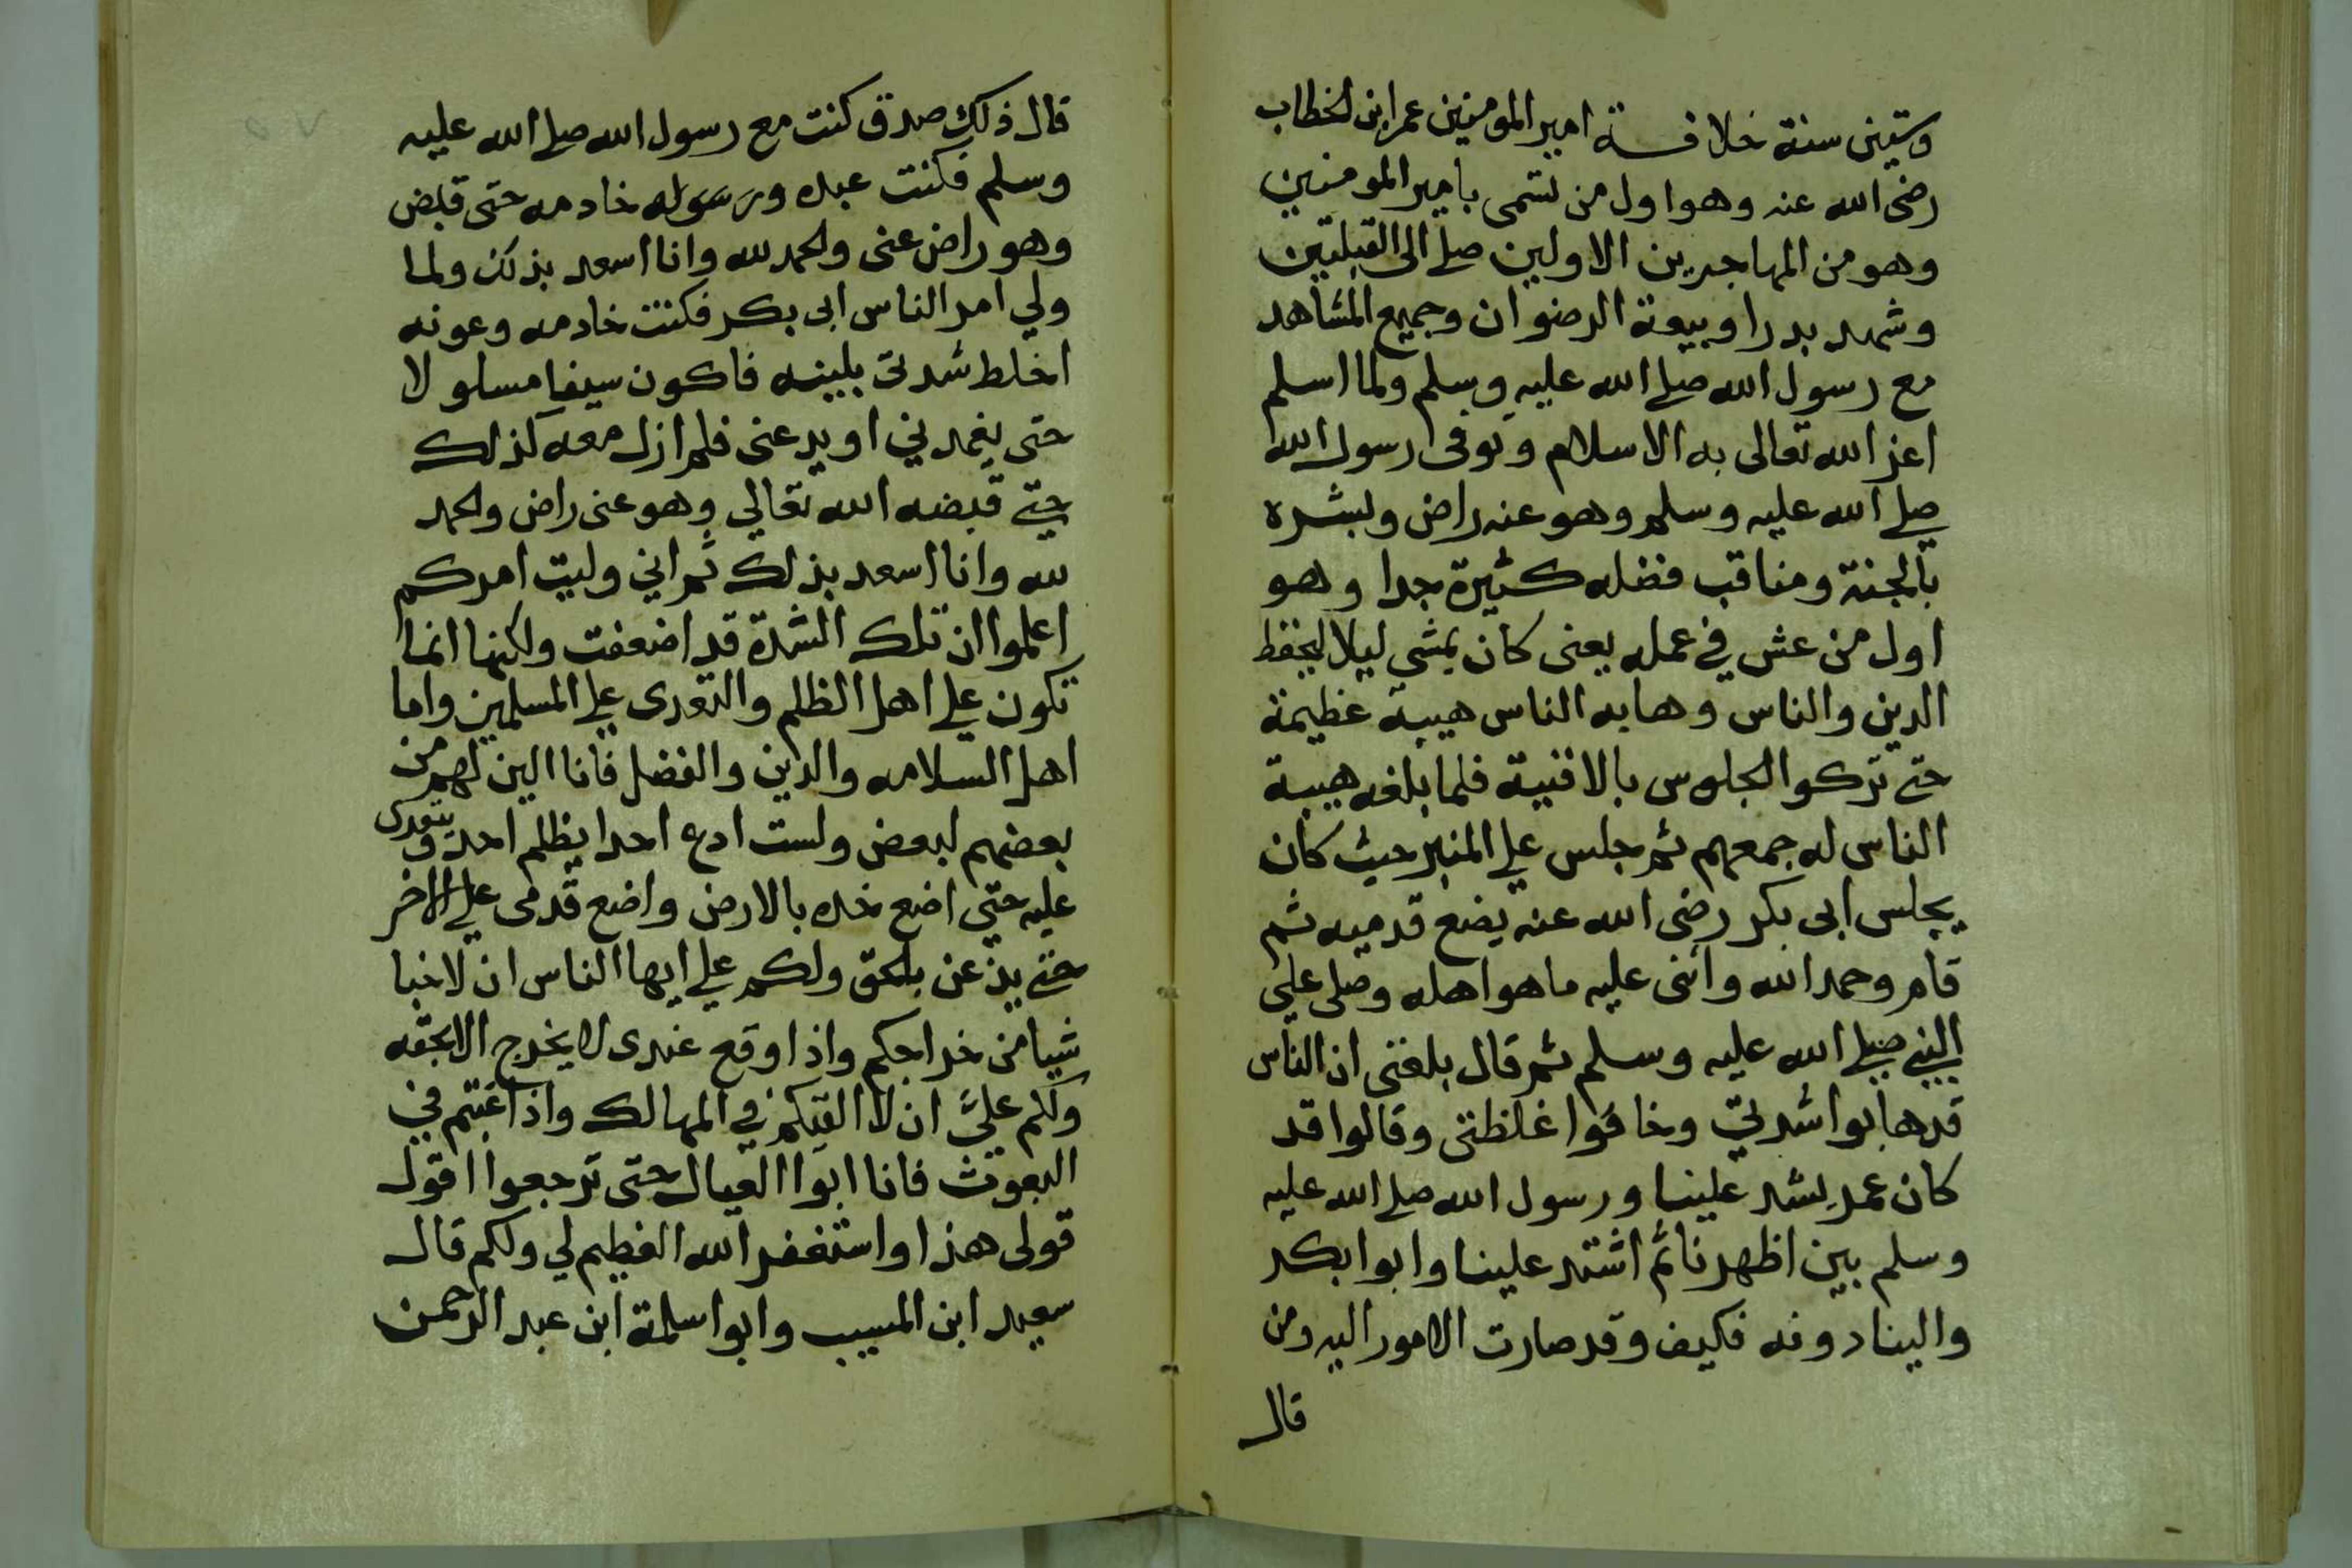 وستين سنة خلافة امير المومنين عمر ابن الخطاب
رضى الله عنه وهو اول من تسمى بامير المومنين
وهو من المهاجرين الاولين صلے الى القبلتين
وشهد بدرا وبيعة الرضوان وجميع المشاهد
مع رسول الله صلے الله عليه وسلم ولما اسلم
اعز الله تعالى به الاسلام وتوفى رسول الله
صلے الله عليه وسلم وهو عنه راض وبشره
بالجنة ومناقب فضله كثيرة جدا وهو
اول من عش في عمله يعنى كان يمشي ليلا ليحفظ
الدين والناس وهابه الناس هيبة عظيمة
حتى تركوا الجلوس بالافنية فلما بلغه هيبة
الناس له جمعهم ثم جلس علي المنبر حيث كان
يجلس ابى بكر رضى الله عنه يضع قدميه ثم
قام وحمد الله واثنى عليه ما هو اهله وصلى علي
النبي صلے الله عليه وسلم ثم قال بلغنى ان الناس
قد هابوا شدتي وخافوا غلظتى وقالوا قد
كان عمر يشد علينا ورسول الله صلے الله عليه
وسلم بين اظهرنا ثم اشتد علينا وابوا بكر
والينا دونه فكيف وقد صارت الامور اليه ومن
قال
قال ذلك صدق كنت مع رسول الله صلے الله عليه
وسلم فكنت عبده ورسوله خادمه حتى قبض
وهو راض عنى والحمد لله وانا اسعد بذلك ولما
ولي امر الناس ابى بكر فكنت خادمه وعونه
اخلط شدتى بلينه فاكون سيفا مسلولا
حتى يغمدني او يدعنى فلم ازل معه كذلك
حتى قبضه الله تعالي وهو عنى راض والحمد
لله وانا اسعد بذلك ثم اني وليت امركم
اعلموا ان تلك الشدة قد اضعفت ولكنها انما
تكون علي اهل الظلم والتعدى علي المسلمين واما
اهل السلامه والدين والفضل فانا الين لهم من
بعضهم لبعض ولست ادع احدا يظلم احد ويتعدى
عليه حتي اضع خده بالارض واضع قدمى علي الاخر
حتى يذعن بالحق ولكم علي ايها الناس ان لا اخبا
شيا من خراجكم واذا وقع عندى لا يخرج الا بحقه
ولكم عليَّ ان لا القيكم في المهالك واذا غبتم في
البعوث فانا ابوا العيال حتى ترجعوا اقول
قولى هذا واستغفر الله العظيم لي ولكم قال
سعيد ابن المسيب وابوا سلمة ابن عبد الرحمن